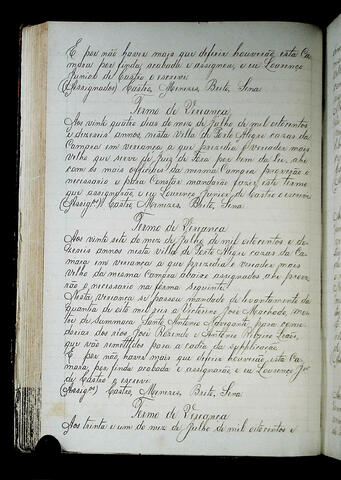 E por não haver mais que deferir houverão esta Ca-
mara por finda, acabada e assignarão, e eu Lourenço
Junior de Castro o escrevi.
(Assignados) Castro, Menezes, Brito, Sena
Termo de Vereança
Aos vinte quatro dias do mez de Julho de mil oitocentos
e dezeseis annos nesta villa de Porto Alegre cazas da
Camara em vereança a que prezedia o vereador mais
velho que serve de Juiz de Fora por bem da lei, ahi
com os mais officiaes da mesma Camara proverão o
necessario e para constar mandarão fazer este termo
que assignarão, e eu Lourenço Junior de Castro o escrevi
(Assigos) Castro, Menezes, Brito, Sena.
Termo de Vereança
Aos vinte sete do mez de Julho de mil oitocentos e de-
zeseis annos nesta villa de Porto Alegre cazas da Ca-
mara em vereança a que prezedia o vereador mais
velho da mesma Camara abaixo assignados, ahi prove-
rão o necessario na forma seguinte.
Nesta vereança se passou mandado de levantamento da
quantia de oito mil reis a Victorino José Machado, mes-
tre da Summaca Santo Antonio
dorias dos réos, José Rezende e Antonio Ribeiro Leão,
que vão remettidos para a cadia da supplicação
E por não haver mais que deferir houverão esta Ca-
mara por finda acabada e assignarão e eu Lourenço Jor
de Castro o escrevi.
(Assigos) Castro, Menezes, Brito, Sena.
Termo de Vereança
Aos trinta e um do mez de Julho de mil oitocentos e